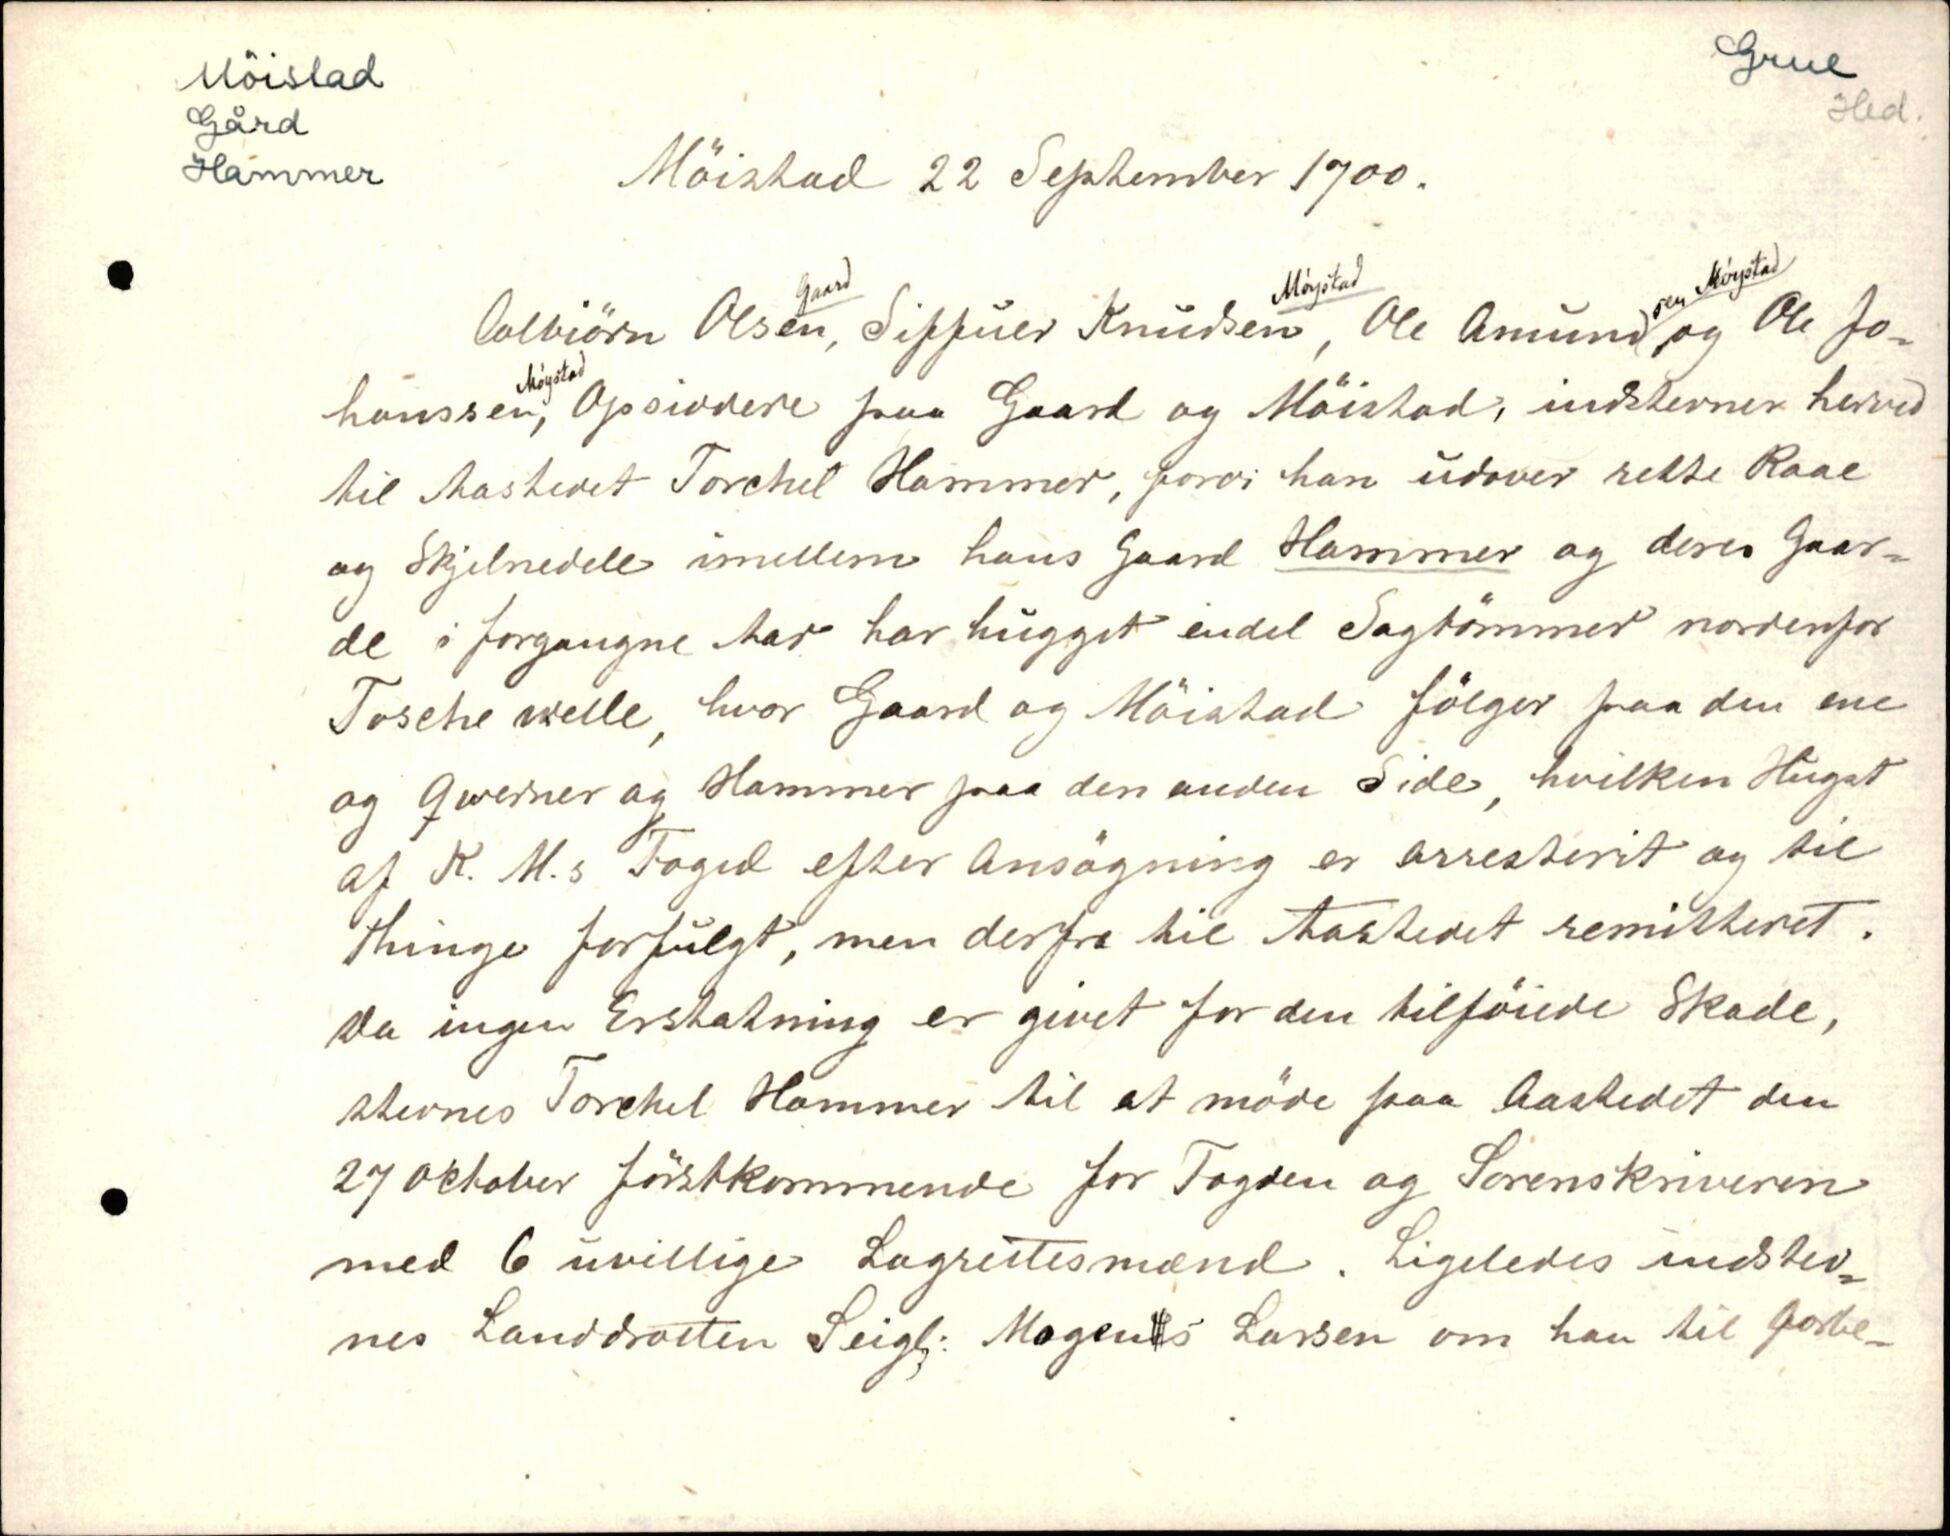 Möistad
Gård
Hammer
Grue
Hed.
Möistad 22 September 1700.
Colbiörn Olsen, Gaard Siffuer Knudsen Möystad, Ole Amundsen Möystad og Ole Jo-
hanssen, Möystad Opsiddere paa Gaard og Möistad, indstevner herved
til Aastedet Torchel Hammer, fordi han udover rette Raae
og Skjelnedele imellem hans Gaard Hammer og deres Gaar-
de i forgangne Aar har hugget endel Sagtömmer nordenfor
Tosche welle, hvor Gaard og Möistad fölger paa den ene
og Qwerner og Hammer paa den anden Side, hvilken Hugst
af K. M.s Foged efter Ansögning er arresterit og til
thinge forfulgt, men derfra til Aastedet remitteret.
Da ingen Erstatning er givet for den tilföiede Skade,
stevnes Torchel Hammer til at möde paa Aastedet den
27 October förstkommende for Fogden og Sorenskriveren
med 6 uvillige Lagrettesmænd. Ligeledes indstev-
nes Landdrotten Seigl: Mogens Larsen om han til Forbe-